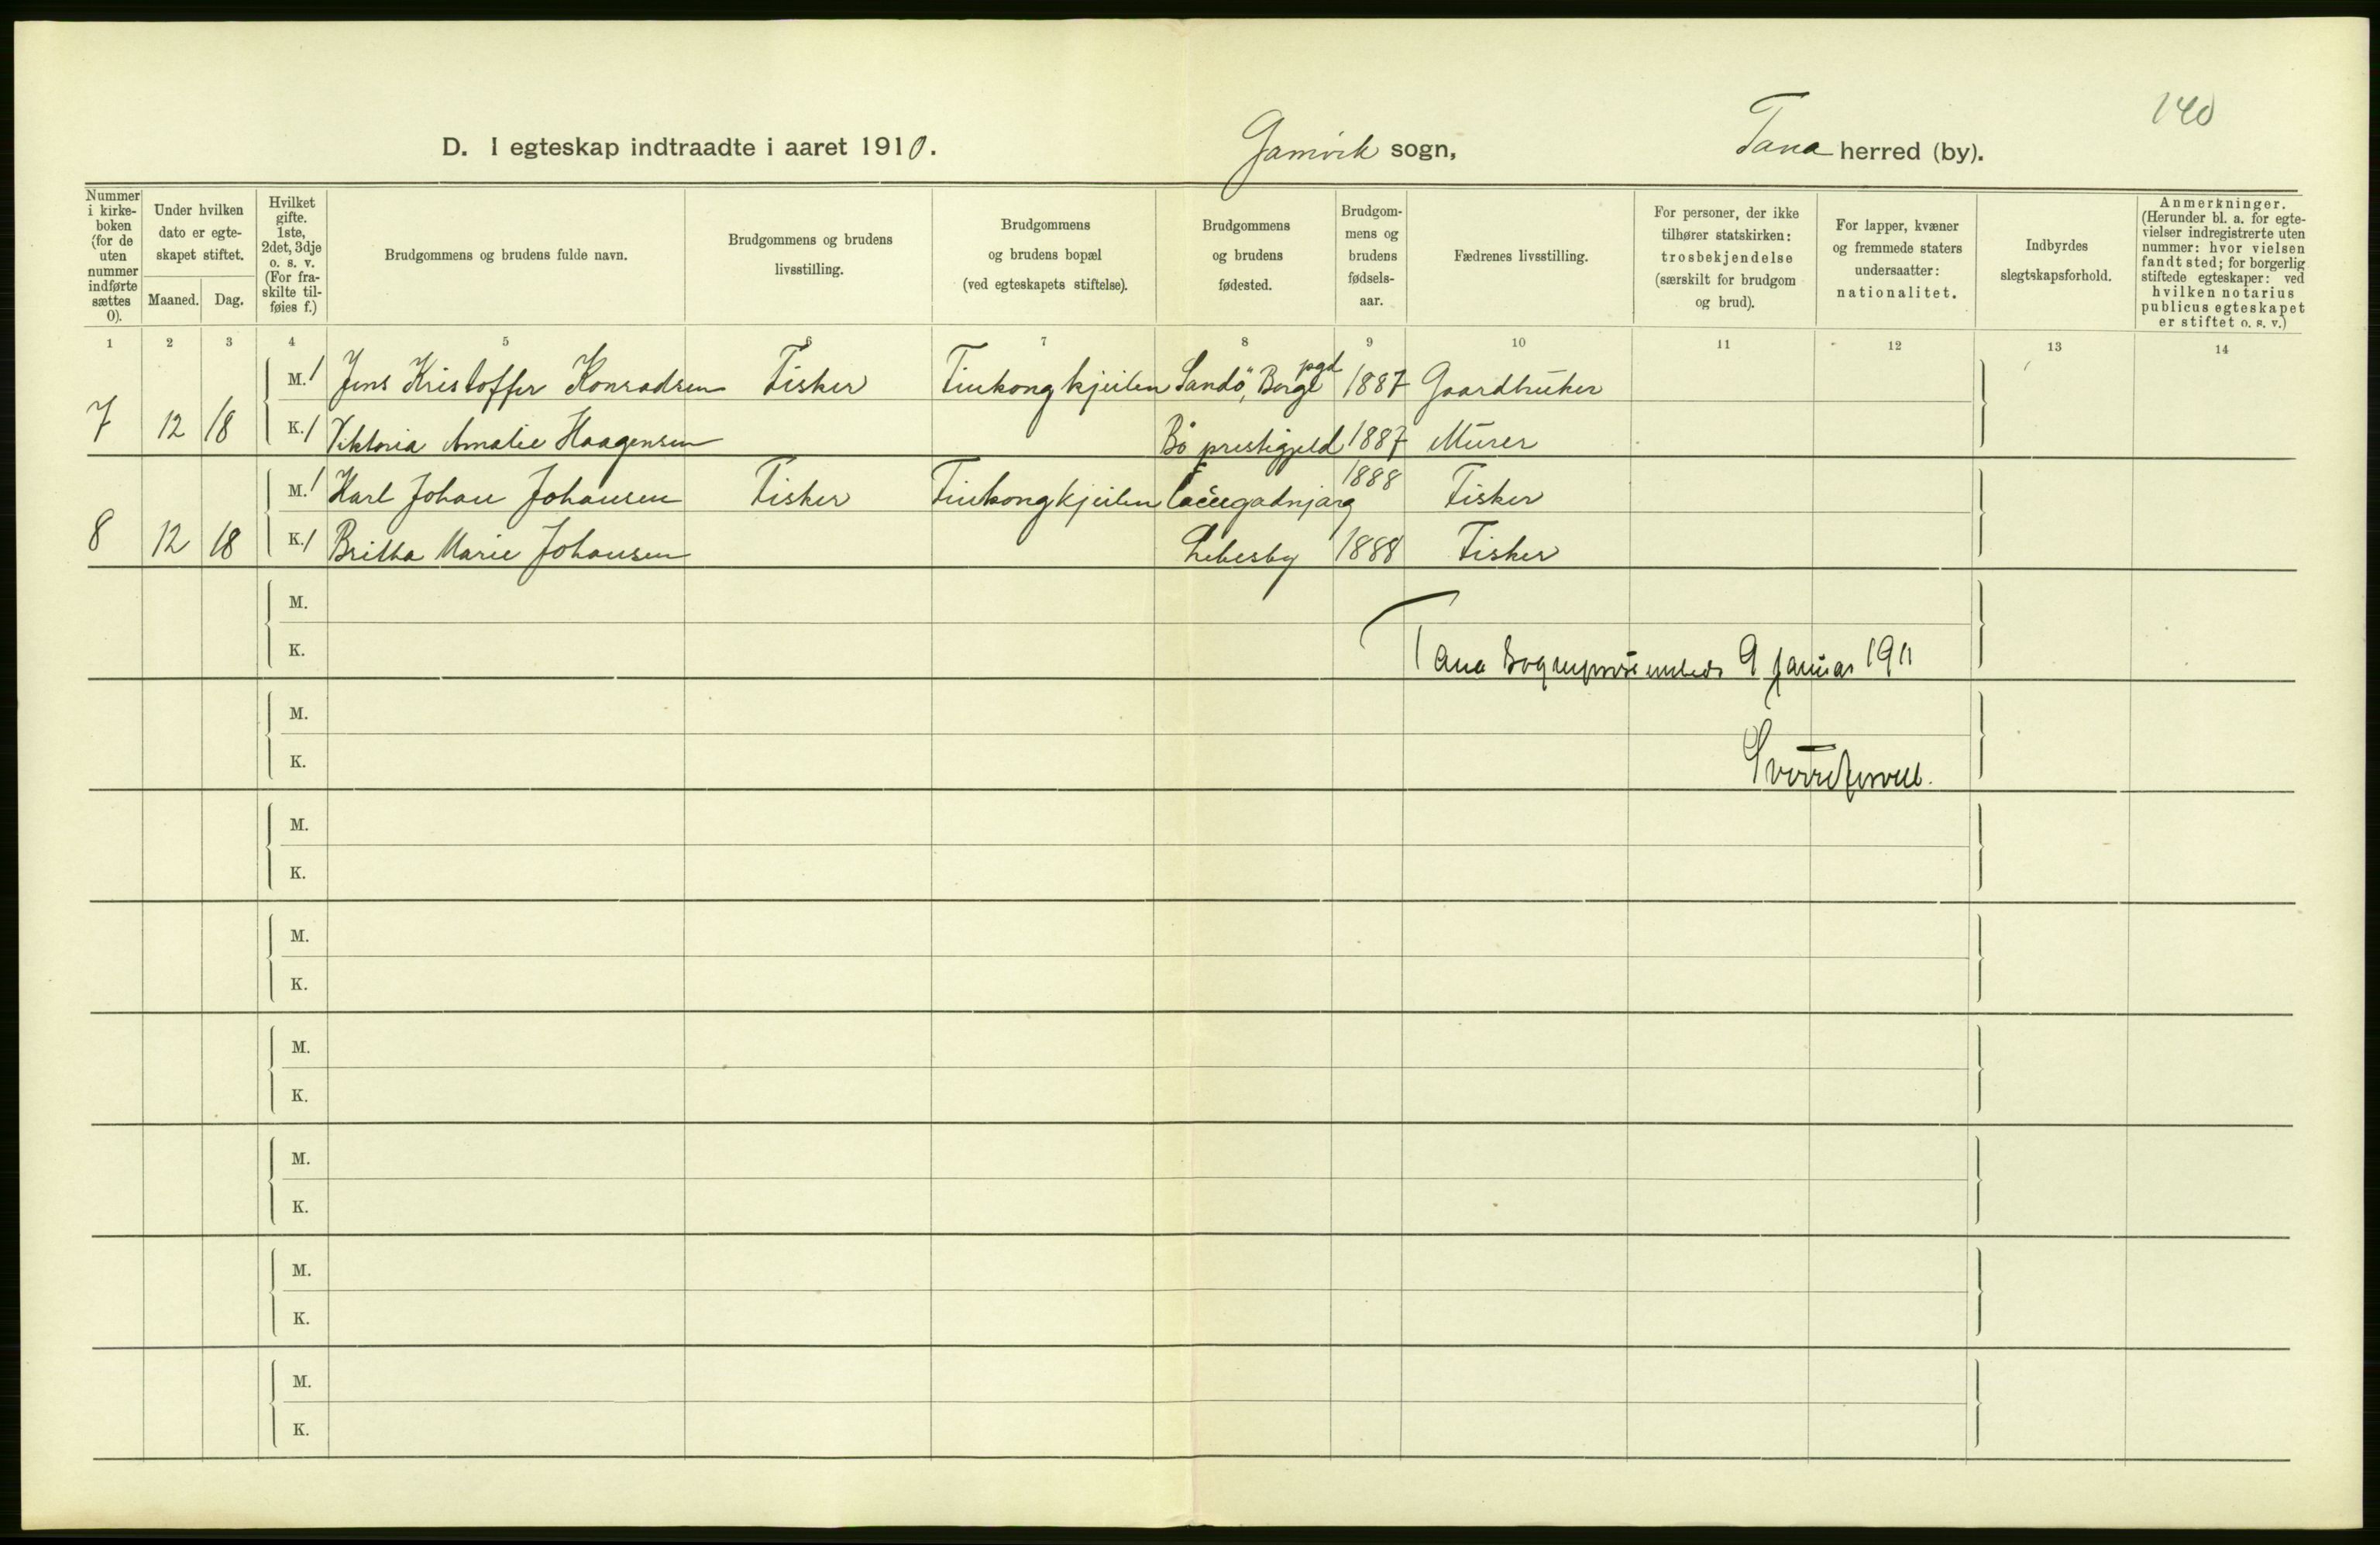 140
D. I egteskap indtraadte i aaret 1910. Gamvik sogn, Tana herred (by).
Nummer i kirke-boken (for de uten nummer indførte sættes 0).
Under hvilken dato er egte-skapet stiftet.
Maaned. Dag.
Hvilket gifte. 1ste, 2det, 3dje o. s. v. (For fra-skilte til-føies f.)
Brudgommens og brudens fulde navn.
Brudgommens og brudens livsstilling.
Brudgommens og brudens bopæl (ved egteskapets stiftelse).
Brudgommens og brudens fødested.
Brudgom-mens og brudens fødsels-aar.
Fædrenes livsstilling.
For personer, der ikke tilhører statskirken: trosbekjendelse (særskilt for brudgom og brud).
For lapper, kvæner og fremmede staters undersaatter: nationalitet.
Indbyrdes slegtskapsforhold.
Anmerkninger. (Herunder bl. a. for egte-vielser indregistrerte uten nummer: hvor vielsen fandt sted; for borgerlig stiftede egteskaper: ved hvilken notarius publicus egteskapet er stiftet o. s. v.)
1 2 3 4 5 6 7 8 9 10 11 12 13 14
M. 1 Jens Kristoffer Konradsen Fisker Finkongkjeilen Sandö, Borge pgd 1887 Gaardbruker
7 12 18 K. 1 Viktoria Amalie Haagensen Bö prestigjeld 1887 Murer
M. 1 Karl Johan Johansen Fisker Finkongkjeilen 1888 Fisker
8 12 18 K. 1 Britha Marie Johansen Lebesby 1888 Fisker
M.
K.
Tana 9 januar 1911
M.
K.
M.
K.
M.
K.
M.
K.
M.
K.
M.
K.
M.
K.